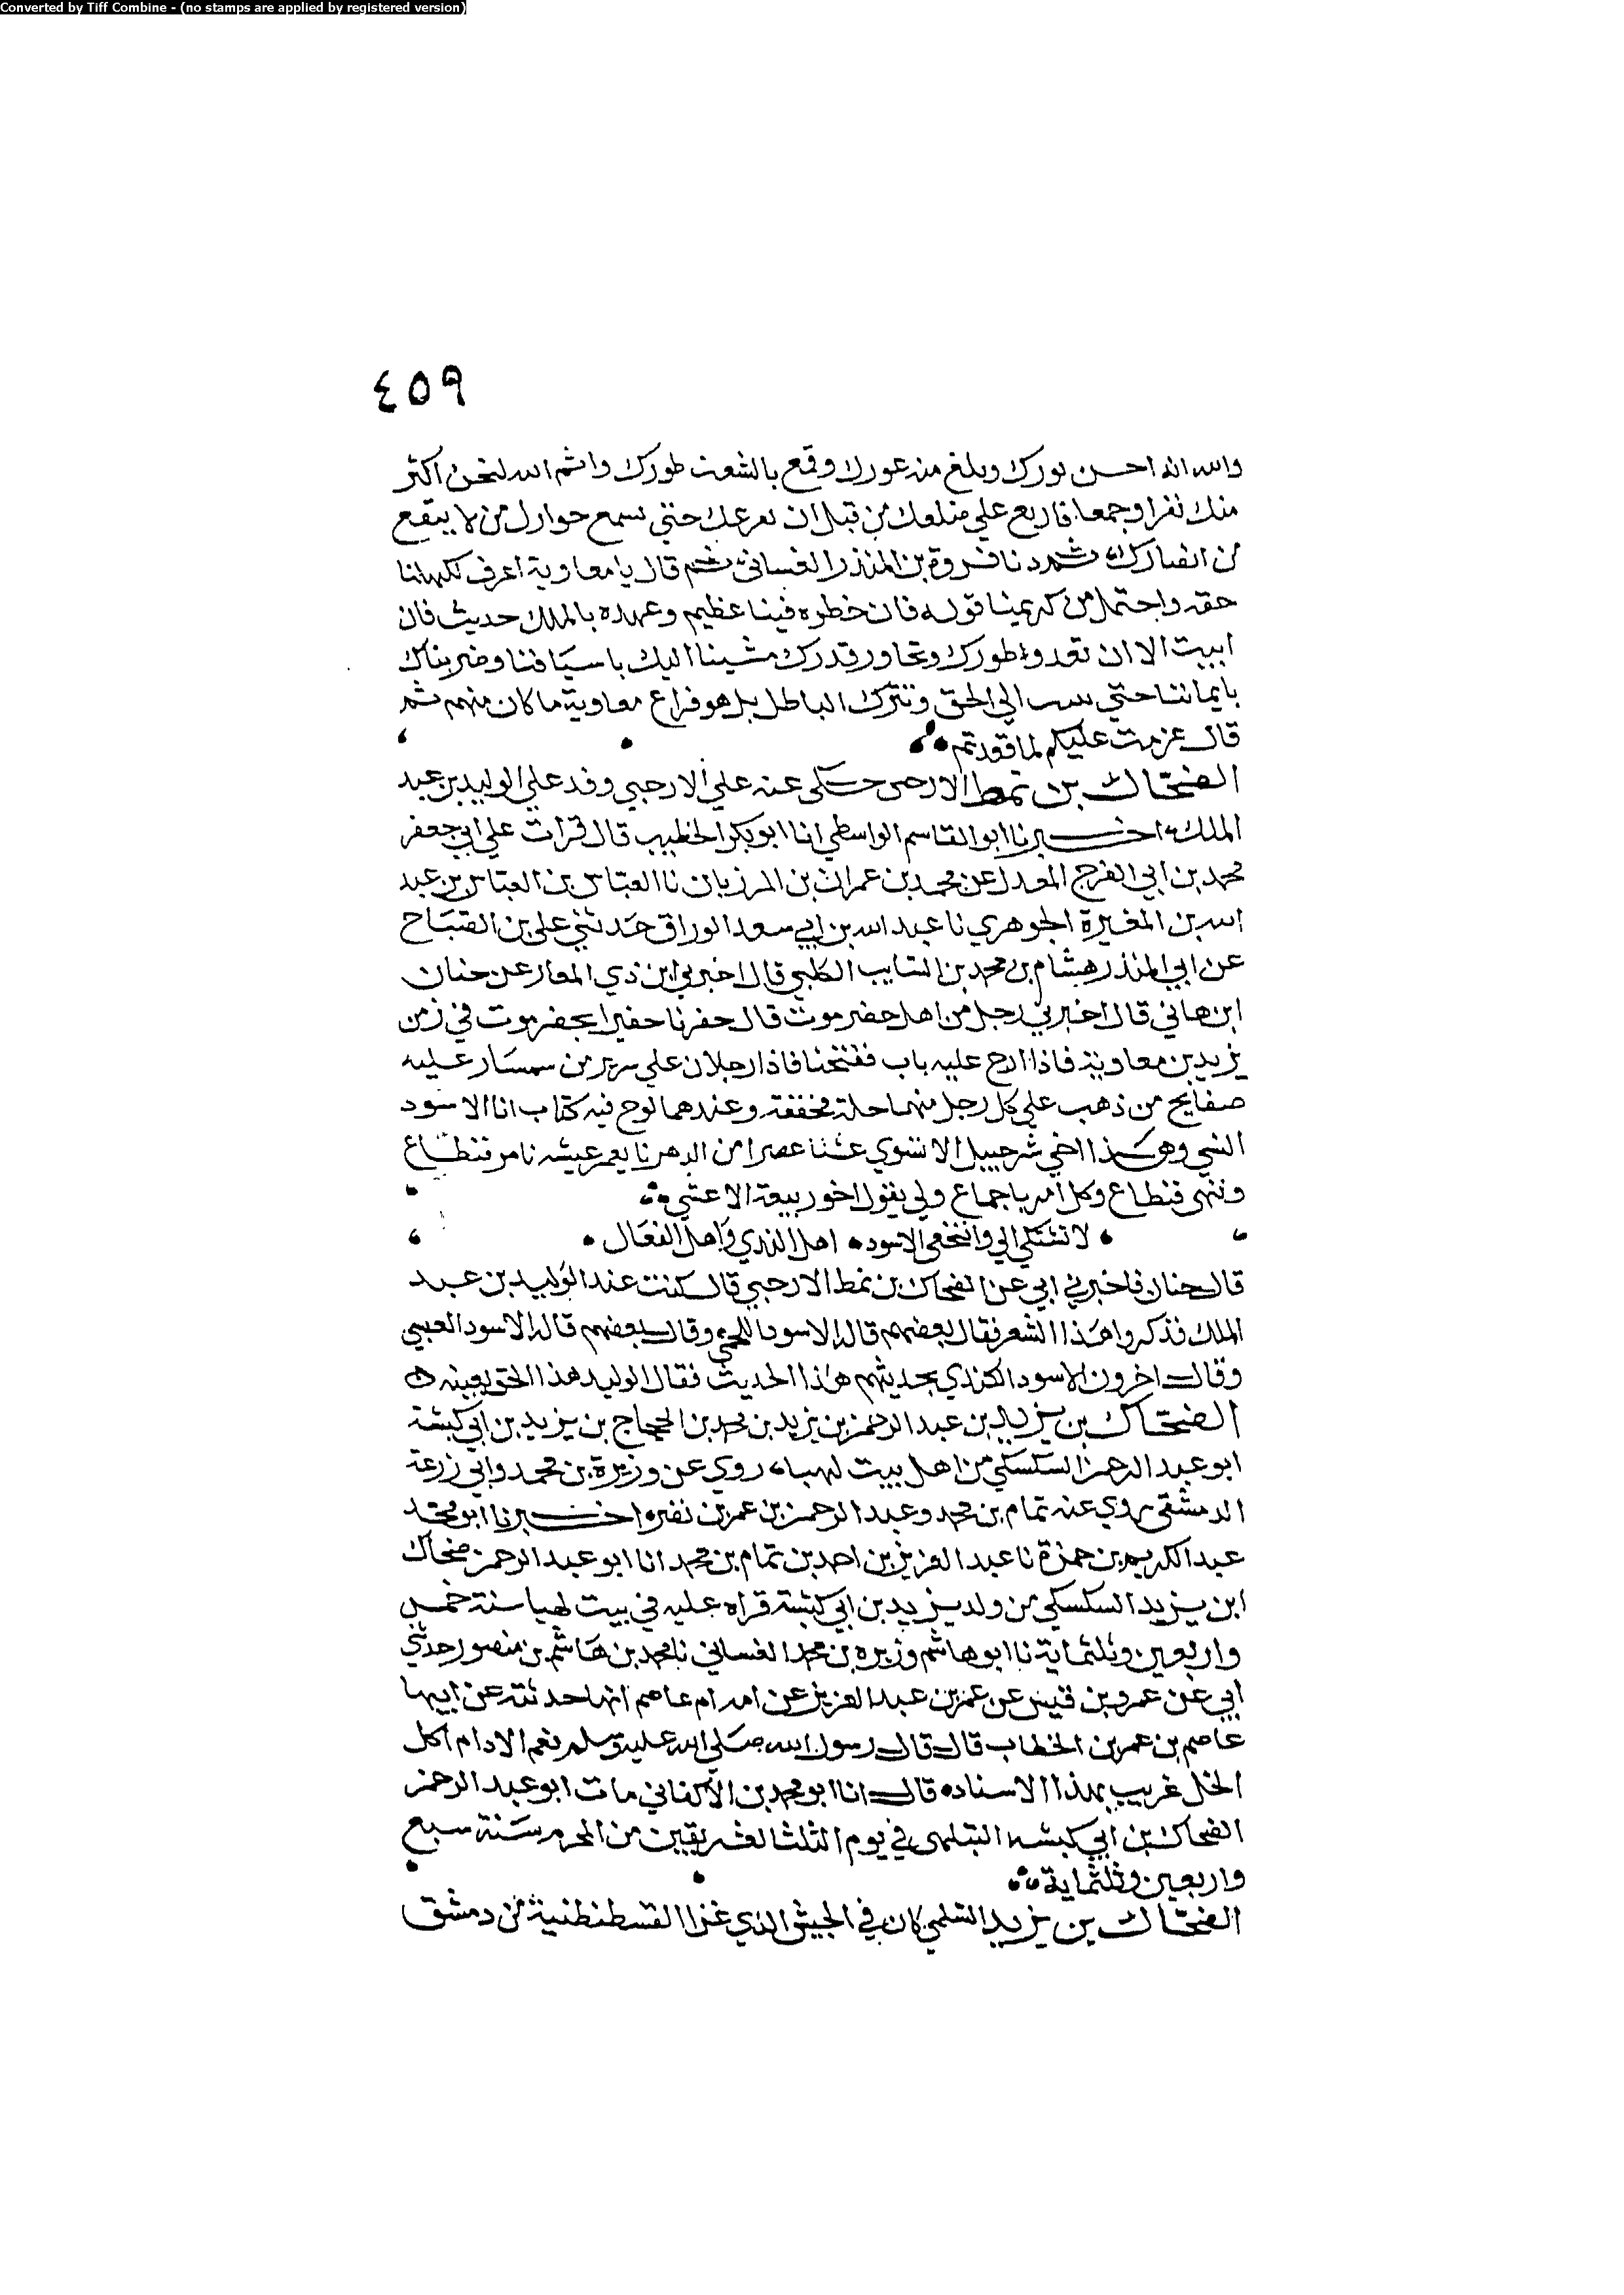 Converted by Tiff Combine - (no stamps are applied by registered version)
٤٥٩
والله الله احسن نورك وبلغ منه عورك وقمع بالشعث طورك وايم الله لنحن اكثر
منك نفرا وجمعا فاربع علي ضلعك من قبل ان نعرعك حتي تسمع حوارك من لا ينفع
من انصارك ثم دنا فروة بن المنذر الغساني ثم قال يا معاوية اعرف لكهلنا
حقه واحتمل من كريمنا قوله فان خطره فينا عظيم وعهده بالملك حديث فان
ابيت الا ان تعدوا طورك وتجاور قدرك مشينا اليك باسيافنا وضربناك
بايماننا حتي الي الحق وتترك الباطل معاوية ما كان منهم ثم
قال عزمت عليكم لما قعدتم
الضحاك بن نمط الارحبي حكى عنه علي الارحبي وفد علي الوليد بن عبد
الملك اخبرنا ابو القاسم الواسطي انا ابو بكر الخطيب قال قرات علي ابي جعفر
محمد بن ابي الفرج المعدل عن محمد بن عمران بن المرزبان نا العباس بن العباس بن عبد
الله بن المغيرة الجوهري نا عبد الله بن ابي سعد الوراق حدثني علي بن الصباح
عن ابي المنذر هشام بن محمد بن السايب الكلبي قال اخبرني ابن ذي المعار عن حنان
ابن هاني قال اخبرني رجل من اهل حضرموت قال حفرنا حفيرا بحضرموت في زمن
يزيد بن معاوية فاذا ازج عليه باب ففتحنا فاذا رجلان علي سرير من سمسار عليه
صفايح من ذهب علي كل رجل منهما حلة مخففة وعندهما لوح فيه كتاب انا الاسود
النبي وهذا اخي شرحبيل الاسوي عشنا عصرا من الدهر نا يعم عيشه نامر فنطاع
وننهي فنطاع وكل امر يا جماع ولي يقول اخو ربيعة الاعشي
لا تشتكي الي وانتجعي الاسود اهل الندي واهل الفعال
قال حنان فاخبرني ابي عن الضحاك بن نمط الارحبي قال كنت عند الوليد بن عبد
الملك فذكروا هذا الشعر فقال بعضهم قاله الاسود اللخمي وقال بعضهم قاله الاسود العبسي
وقال اخرون الاسود الكندي بحديثهم هذا الحديث فقال الوليد هذا الحق بعينه
الضحاك بن يزيد بن عبد الرحمن بن يزيد بن محمد بن الحجاج بن يزيد بن ابي كبشة
ابو عبد الرحمن السكسكي من اهل بيت لهيا روي عن وزيرة بن محمد وابي زرعة
الدمشقي روي عنه تمام بن محمد وعبد الرحمن بن عمر بن نصر اخبرنا ابو محمد
عبد الكريم بن حمزة نا عبد العزيز بن احمد بن تمام بن محمد انا ابو عبد الرحمن ضحاك
ابن يزيد السكسكي من ولد يزيد بن ابي كبشة قراه عليه في بيت لهيا سنة خمس
واربعين وثلثماية نا ابو هاشم وزيره بن محمد الغساني نا محمد بن هاشم بن منصور حدثني
ابي عن عمرو بن قيس عن عمر بن عبد العزيز عن امه ام عاصم انها حدثته عن ابيها
عاصم بن عمر بن الخطاب قال قال رسول الله صلي الله عليه وسلم نعم الادام اكل
الخل غريب بهذا الاسناد قال انا ابو محمد بن الاكفاني مات ابو عبد الرحمن
الضحاك بن ابي كبشه في يوم الثلثا لعشر بقين من المحرم سنة سبع
واربعين وثلثماية
الضحاك بن يزيد السلمي كان في الجيش الذي غزا القسطنطنية من دمشق